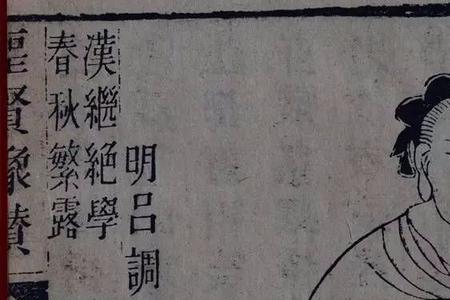 明呂調
漢繼絕學
春秋繁露
聖賢像贊